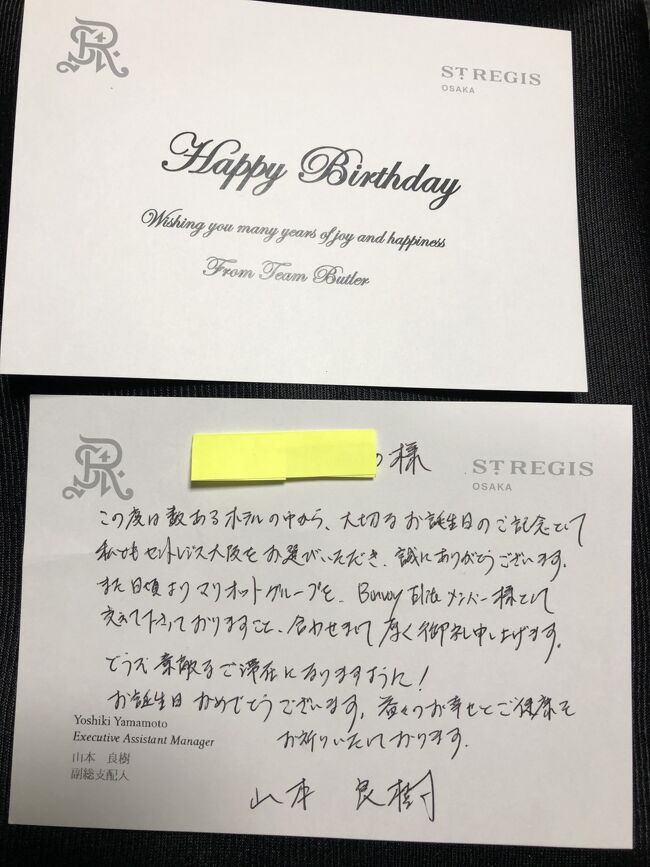 ST. REGIS
OSAKA
Happy Birthday
Wishing you many years of joy and happiness
From Team Butler
様
ST. REGIS
OSAKA
この度は数あるホテルの中から、大切なお誕生日のご記念として
私どもセントレジス大阪をお選びいただき、誠にありがとうございます。
また日頃よりマリオットグループを、Bonvoy Eliteメンバー様として
支えて下さっておりますこと、合わせまして厚く御礼申し上げます。
どうぞ素敵なご滞在になりますように!
お誕生日おめでとうございます。益々のお幸せとご健康を
お祈りいたしております。
Yoshiki Yamamoto
Executive Assistant Manager
山本 良樹
副総支配人
山本 良樹